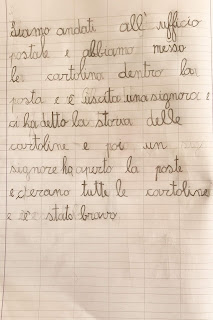 Siamo andati all'ufficio
postale e abbiamo messo
le cartoline dentro la
posta e è uscita una signora e
ci ha detto la storia delle
cartoline e poi un
signore ha aperto la poste
e c'erano tutte le cartoline
e è stato bravo